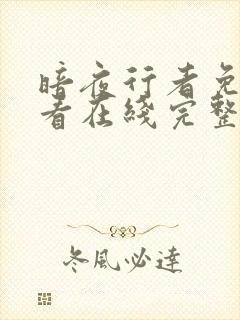 暗夜行者免
看在綫完整
冬風必達